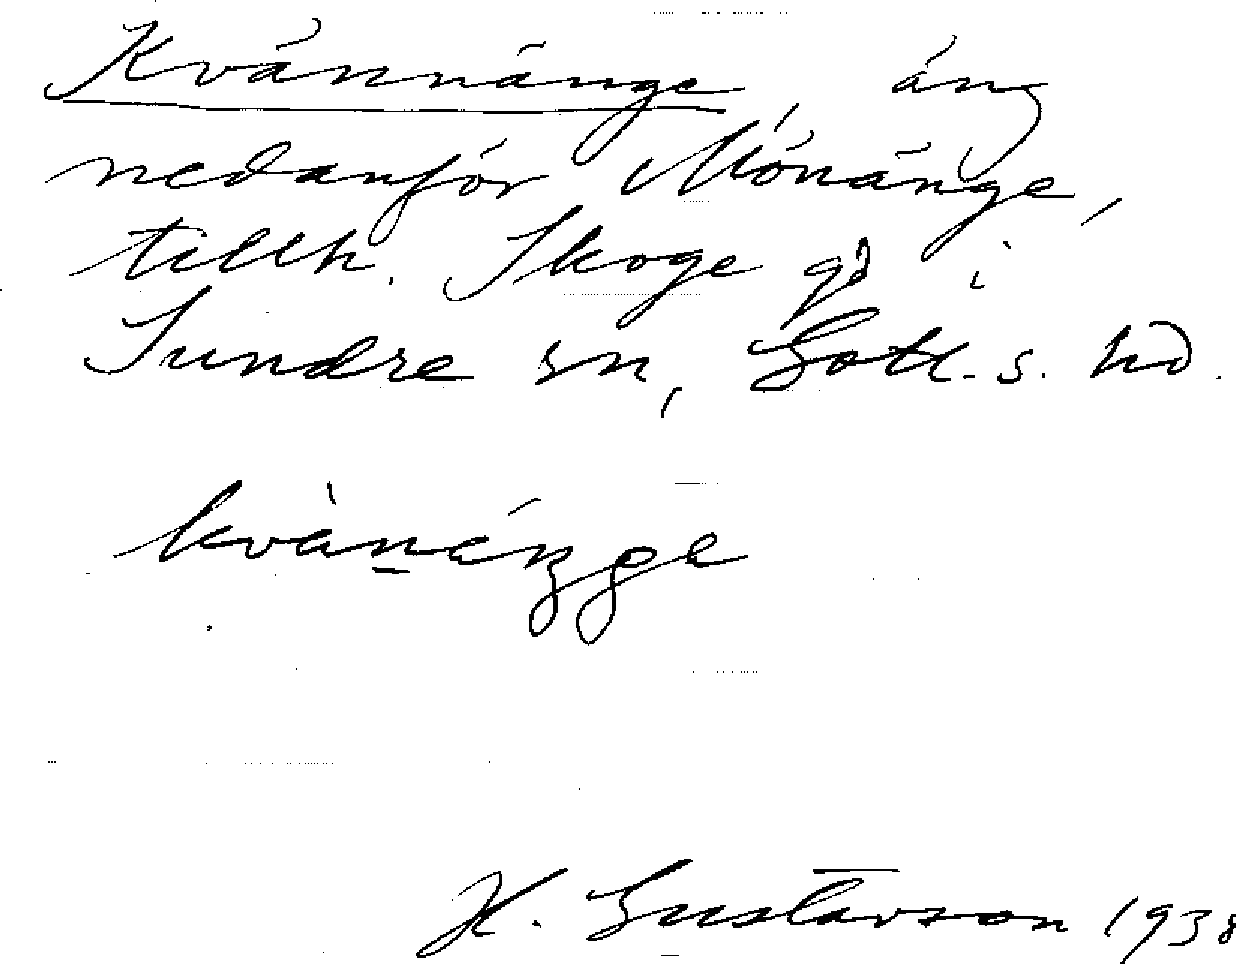 Kvännänge, äng
nedanför Mönänge,
tillh. Skoge gd i
Sundre sn, Gotl. s. hd.
kvànéŋge
H. Gustavson 1938